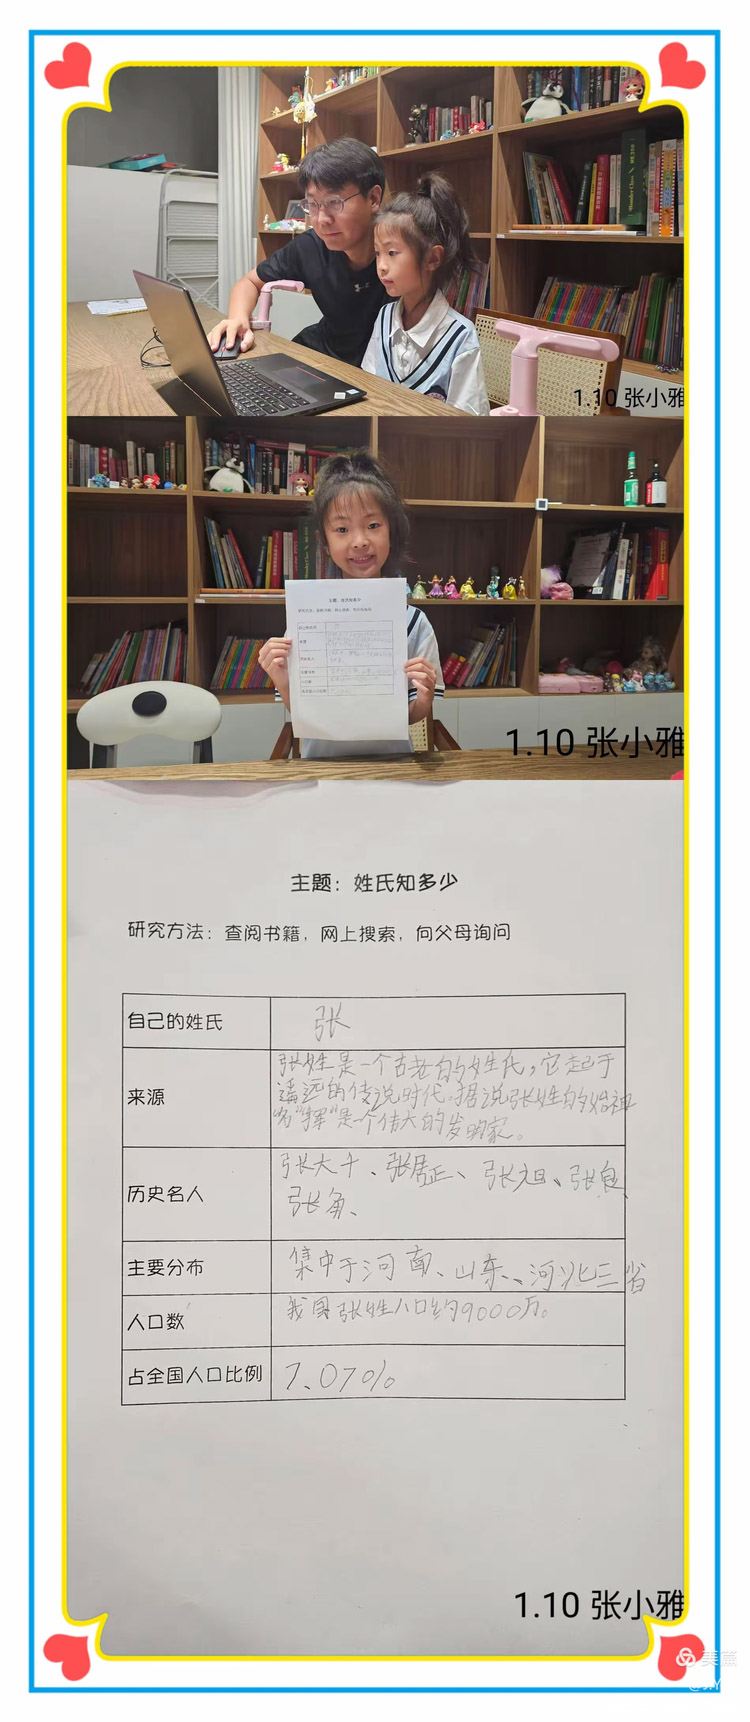 1.10 张小雅
1.10 张小雅
主题：姓氏知多少
研究方法：查阅书籍，网上搜索，向父母询问
自己的姓氏 张
来源 张姓是一个古老的姓氏，它起于
遥远的传说时代。据说张姓的始祖
名"挥"是一个伟大的发明家。
历史名人 张大千、张居正、张旭、张良、
张角、
主要分布 集中于河南、山东、河北三省
人口数 我国张姓人口约9000万。
占全国人口比例 7.07%
1.10 张小雅
美篇